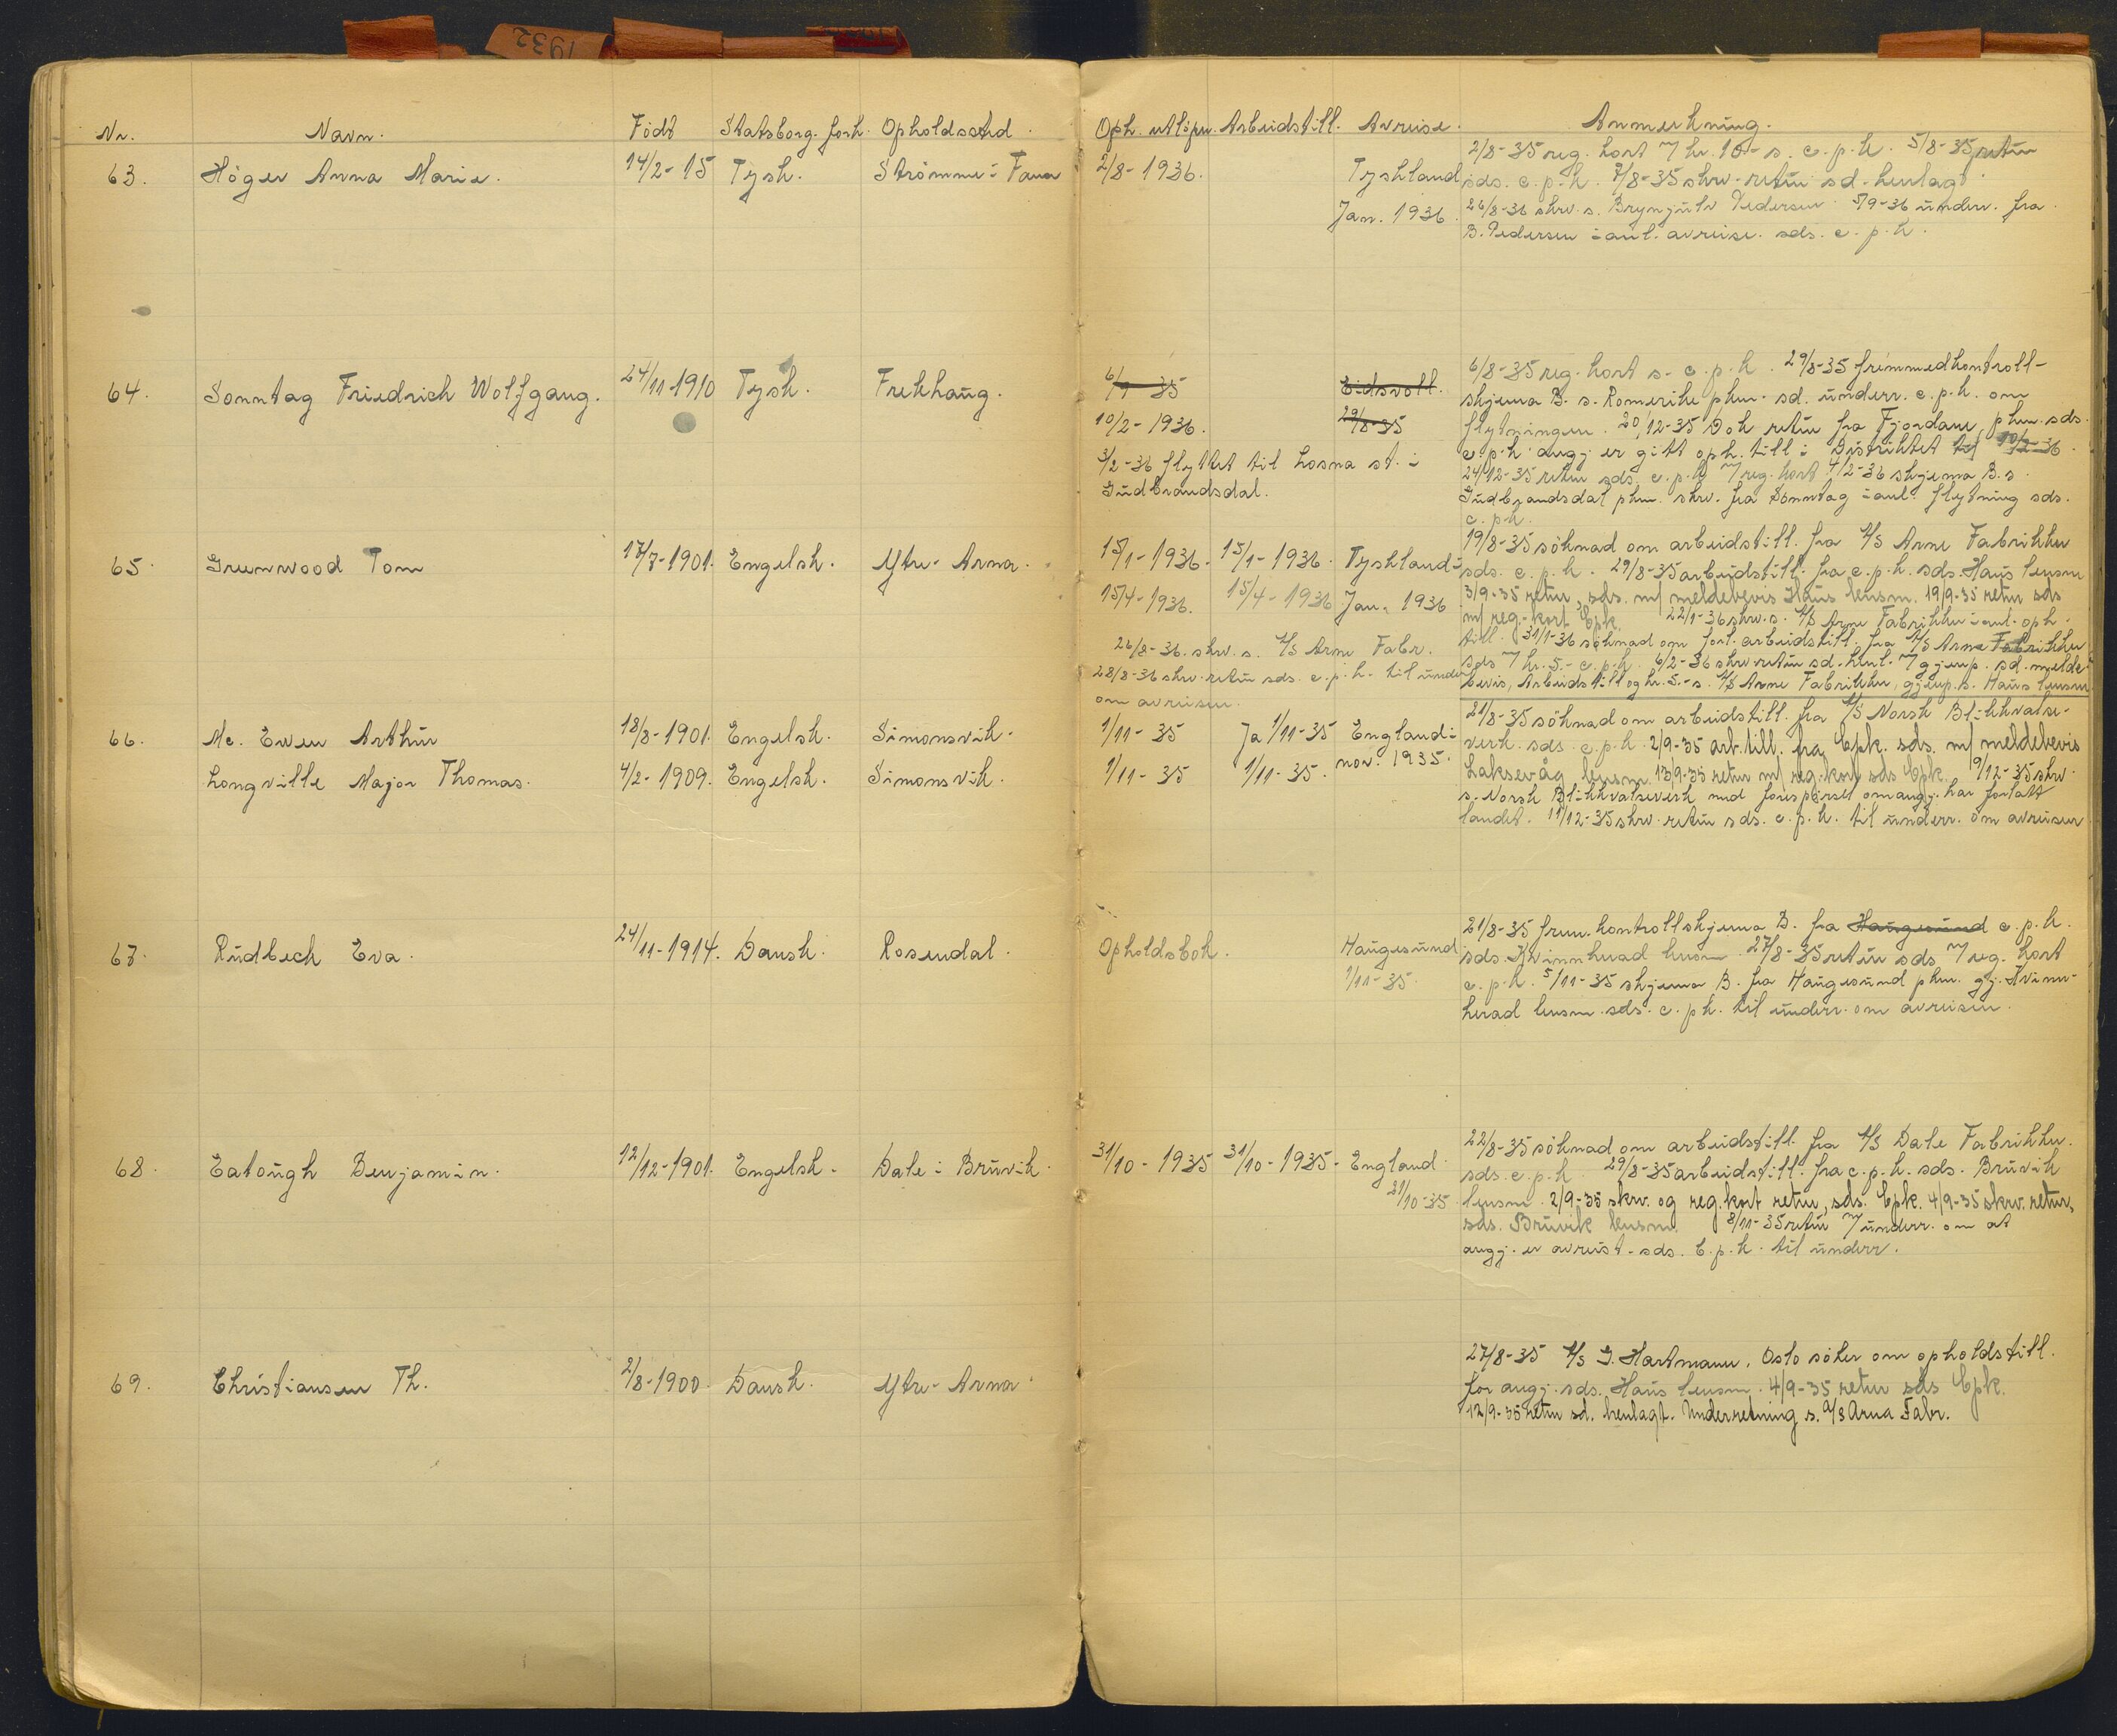 1932
Nr. Navn. Født Statsborg. forh. Opholdssted. Oph. utløper. Arbeidstill. Avreise. Anmerkning.
63. Höger Anna Marie. 14/2-15 Tysk. Strømme i Fana 2/8-1936. Tyskland Jan. 1936.
2/8-35 reg. kort m/ kr. 10.- s. c.p.k. 5/8-35 retur
sds. c.p.k. 7/8-35 skrv. retur sd. henlagt.
26/8-36 skrv. s. Brynjulv Pedersen. 5/9-36 underr. fra
B. Pedersen i anl. avreise. sds. c.p.k.
64. Sonntag Friedrich Wolfgang. 24/11-1910 Tysk. Frekhaug. 6/9-35 Eidsvoll.
10/2-1936. 29/8-35
3/2-36 flyttet til Losna st. i
Gudbrandsdal.
6/8-35 reg. kort s. c.p.k. 29/8-35 fremmedkontroll-
skjema B. s. Romerike pkm. sd. underr. c.p.k. om
flytningen. 20/12-35 Dok retur fra Fjordane pkm. sds.
c.p.k. angj. er gitt oph. till i Distriktet til 10/2-36.
24/12-35 retur sds. c.p.k. m/ reg. kort 4/2-36 skjema B. s.
Gudbrandsdal pkm. skrv. fra Sonntag i anl. flytning sds.
c.p.k.
65. Greenwood Tom 17/7-1901. Engelsk. Ytre-Arna. 15/1-1936. 15/1-1936. Tyskland i
15/4-1936. 15/4-1936 Jan. 1936
26/8-36. skrv. s. A/S Arne Fabr.
28/8-36 skrv. retur sds. c.p.k. til underr
om avreisen.
19/8-35 söknad om arbeidstill. fra A/S Arne Fabrikker
sds. c.p.k. 29/8-35 arbeidstill. fra c.p.k. sds. Haus lensm
3/9-35 retur, sds. m/ meldebevis Haus lensm. 19/9-35 retur sds
m/ reg.-kort Cpk. 22/1-36 skrv. s. A/S Arne Fabrikker i anl. oph.
till. 31/1-36 söknad om fort. arbeidstill. fra A/S Arne Fabrikker
sds m/ kr. 5.- c.p.k. 6/2-36 skrv retur sd. henl. m/ gjenp. sd. melde-
bevis, Arbeidstill og kr. 5.- s. A/S Arne Fabrikker, gjenp. s. Haus lensm
66. Mc. Ewen Arthur 18/8-1901. Engelsk. Simonsvik. 1/11-35 Ja 1/11-35 England i
Longville Major Thomas. 4/2-1909. Engelsk. Simonsvik. 1/11-35 1/11-35. nov. 1935.
21/8-35 söknad om arbeidstill. fra A/S Norsk Blikkvalse-
verk. sds. c.p.k. 2/9-35 arb. till. fra Cpk. sds. m/ meldebevis
Laksevåg lensm. 13/9-35 retur m/ reg.-kort sds Cpk. 9/12-35 skrv.
s. Norsk Blikkvalseverk med forespörsel om angj. har forlatt
landet. 11/12-35 skrv. retur sds. c.p.k. til underr. om avreisen
67. Rudbech Eva. 24/11-1914. Dansk. Rosendal. Opholdsbok. Haugesund
1/11-35.
21/8-35 frem. kontrollskjema B. fra Haugesund c.p.k.
sds. Kvinnherad lensm. 27/8-35 retur sds m/ reg. kort
c.p.k. 5/11-35 skjema B. fra Haugesund pkm. gj. Kvinn-
herad lensm. sds. c.p.k. til underr. om avreisen.
68. Eatough Benjamin. 12/12-1901. Engelsk. Dale i Bruvik. 31/10-1935 31/10-1935. England
21/10-35.
22/8-35 söknad om arbeidstill. fra A/S Dale Fabrikker.
sds. c.p.k. 29/8-35 arbeidstill. fra c.p.k. sds. Bruvik
lensm. 2/9-35 skrv. og reg. kort retur, sds. Cpk. 4/9-35 skrv. retur,
sds. Bruvik lensm. 8/11-35 retur m/ underr. om at
angj. er avreist. sds. C.p.k. til underr.
69. Christiansen Th. 2/8-1900. Dansk. Ytre-Arna
27/8-35 A/S G. Hartmann, Oslo söker om opholdstill.
for angj. sds. Haus lensm. 4/9-35 retur sds Cpk.
12/9-35 retur sd. henlagt. Underretning s. A/S Arna Fabr.